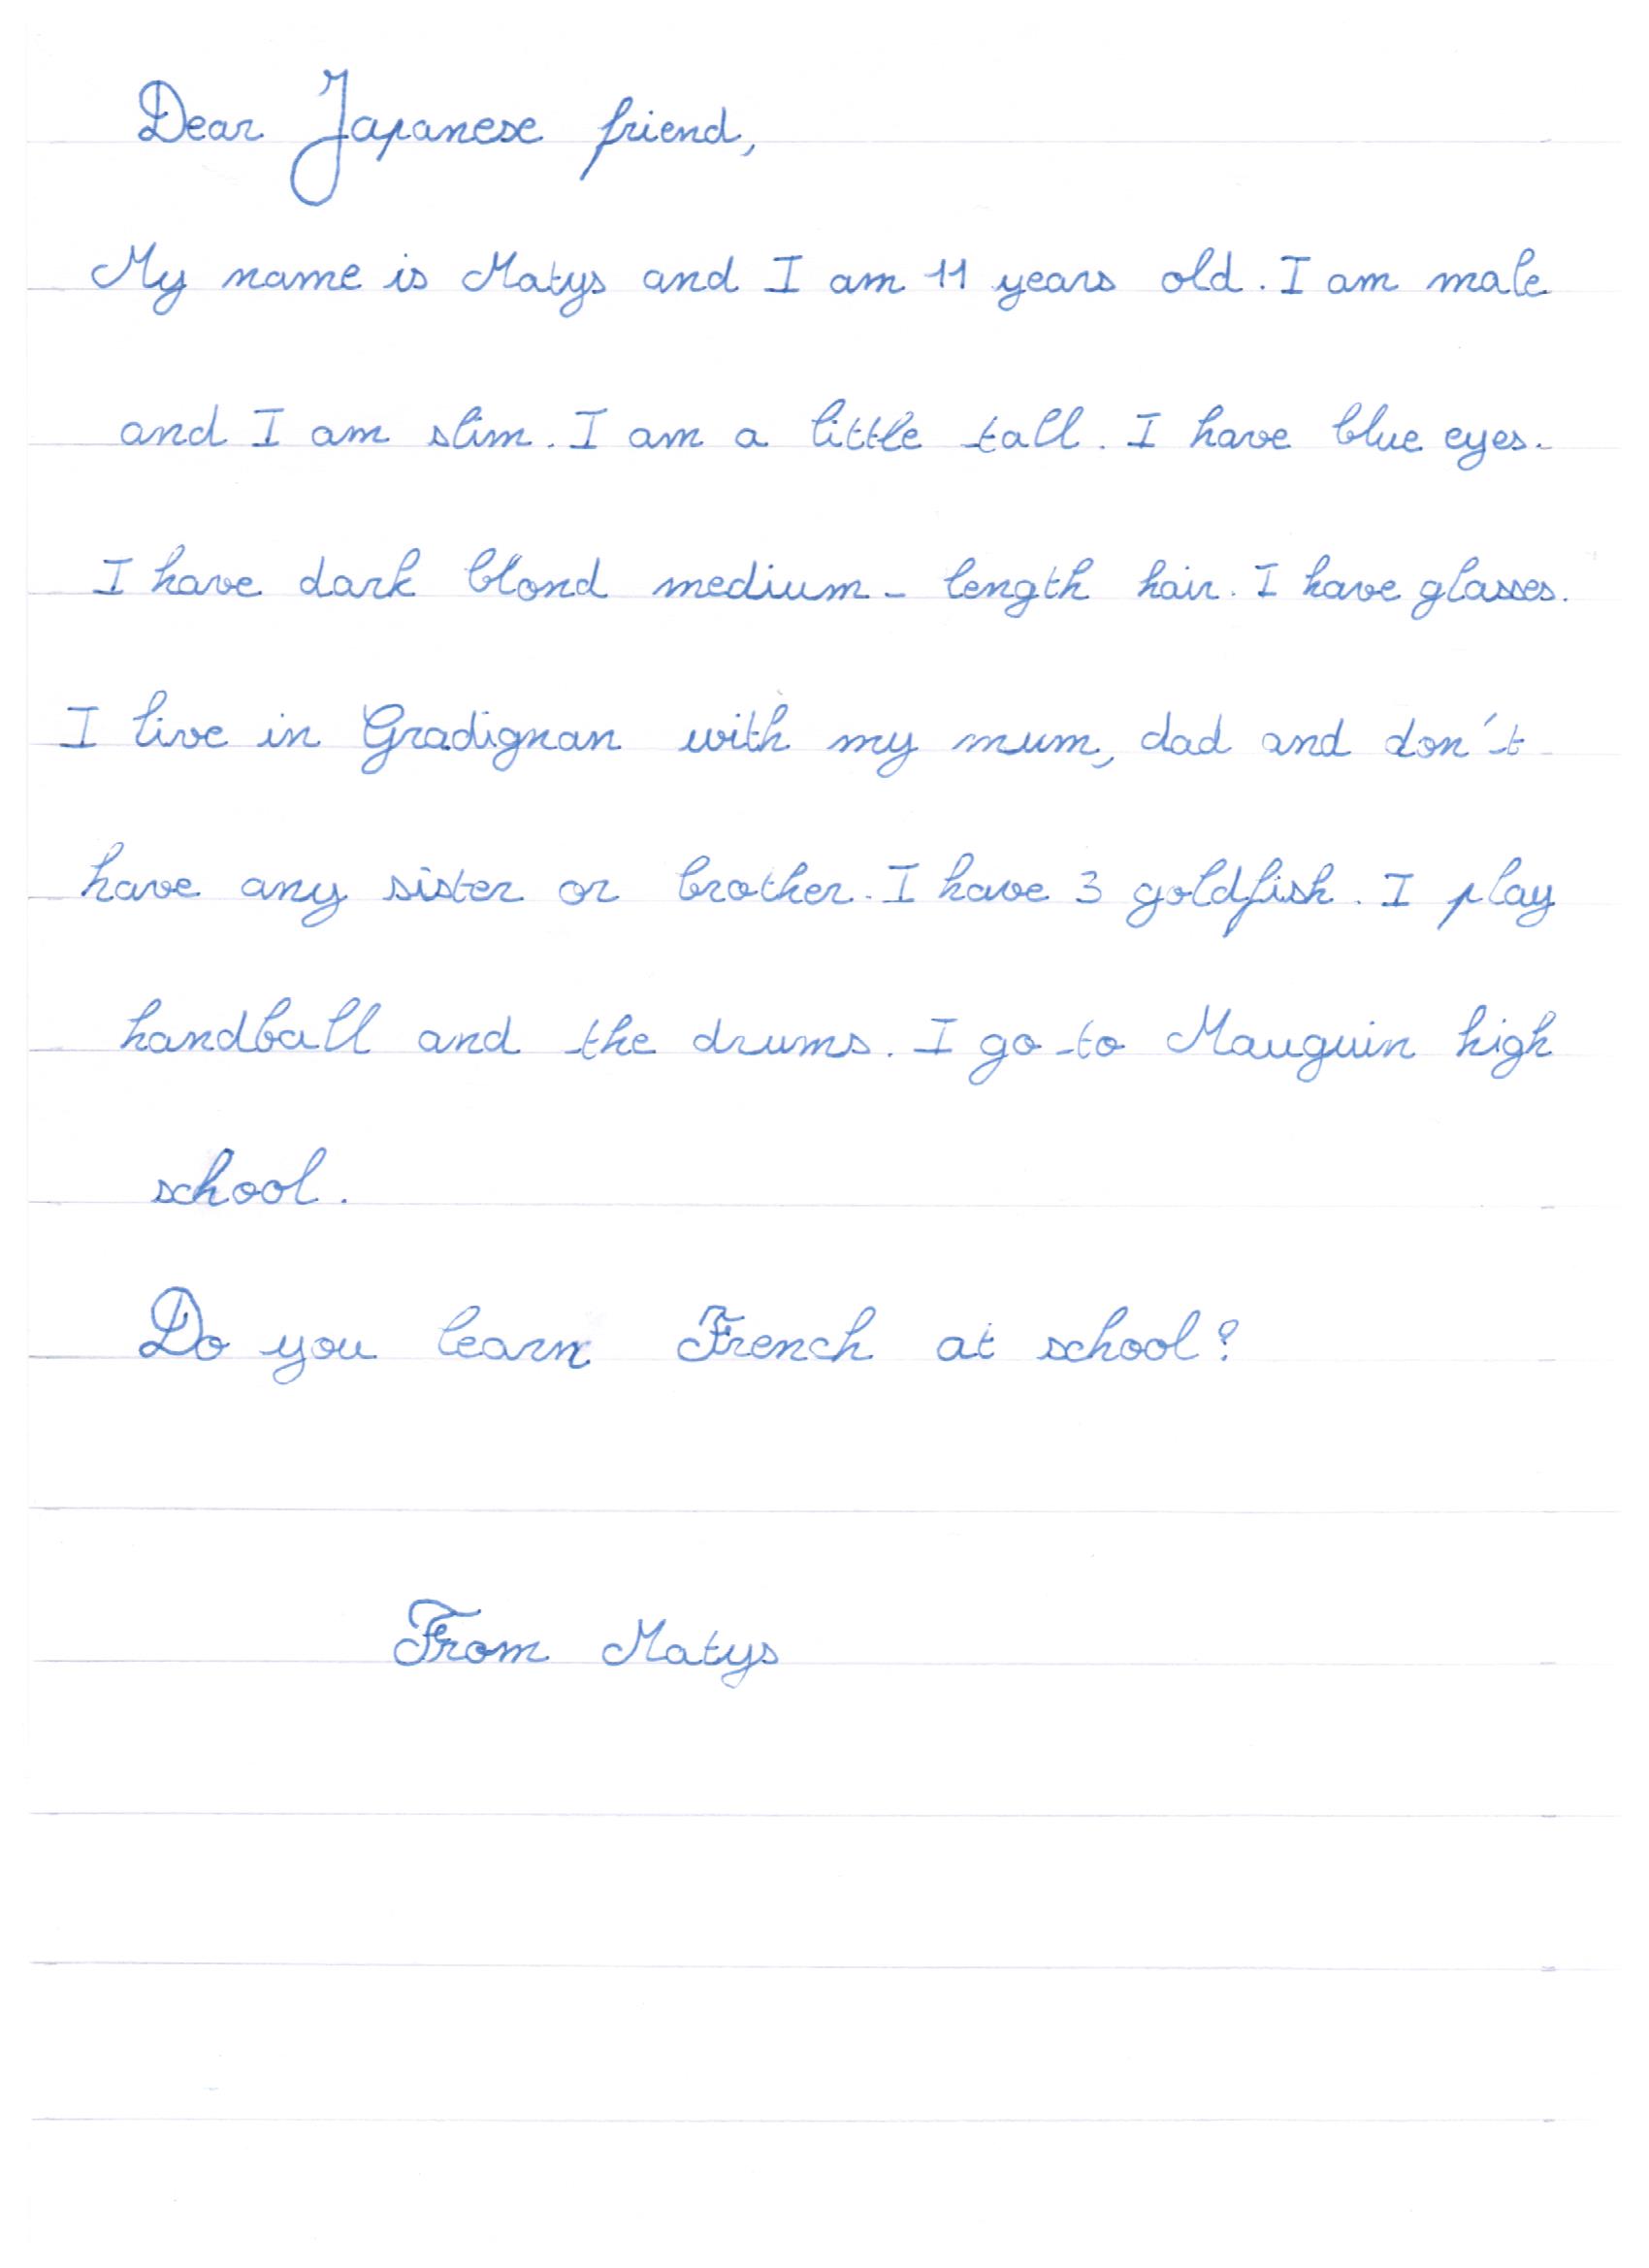 Dear Japanese friend,
My name is Matys and I am 11 years old. I am male
and I am slim. I am a little tall. I have blue eyes.
I have dark blond medium-length hair. I have glasses.
I live in Gradignan with my mum, dad and don't
have any sister or brother. I have 3 goldfish. I play
handball and the drums. I go to Mauguin high
school.
Do you learn French at school?
From Matys